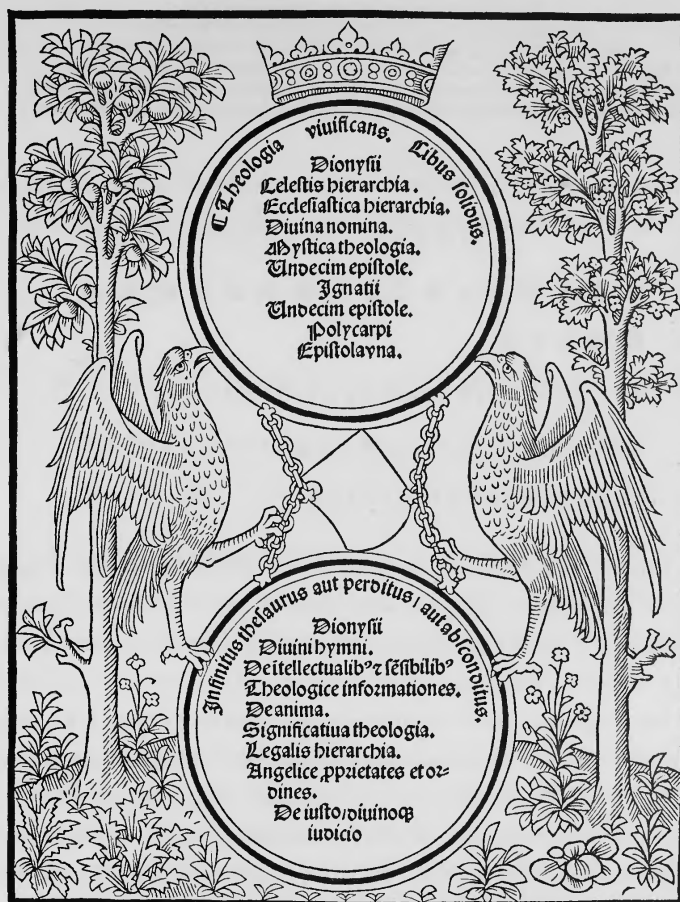 ⸿ Theologia viuificans. Cibus solidus.
Dionysii
Celestis hierarchia.
Ecclesiastica hierarchia.
Diuina nomina.
Mystica theologia.
Undecim epistole.
Ignatii
Undecim epistole.
Polycarpi
Epistola vna.
Infinitus thesaurus aut perditus / aut absconditus.
Dionysii
Diuini hymni.
De ītellectualibꝰ ⁊ sēsibilibꝰ
Theologice informationes.
De anima.
Significatiua theologia.
Legalis hierarchia.
Angelice ꝓprietates et or⸗
dines.
De iusto / diuinoqꝫ
iudicio